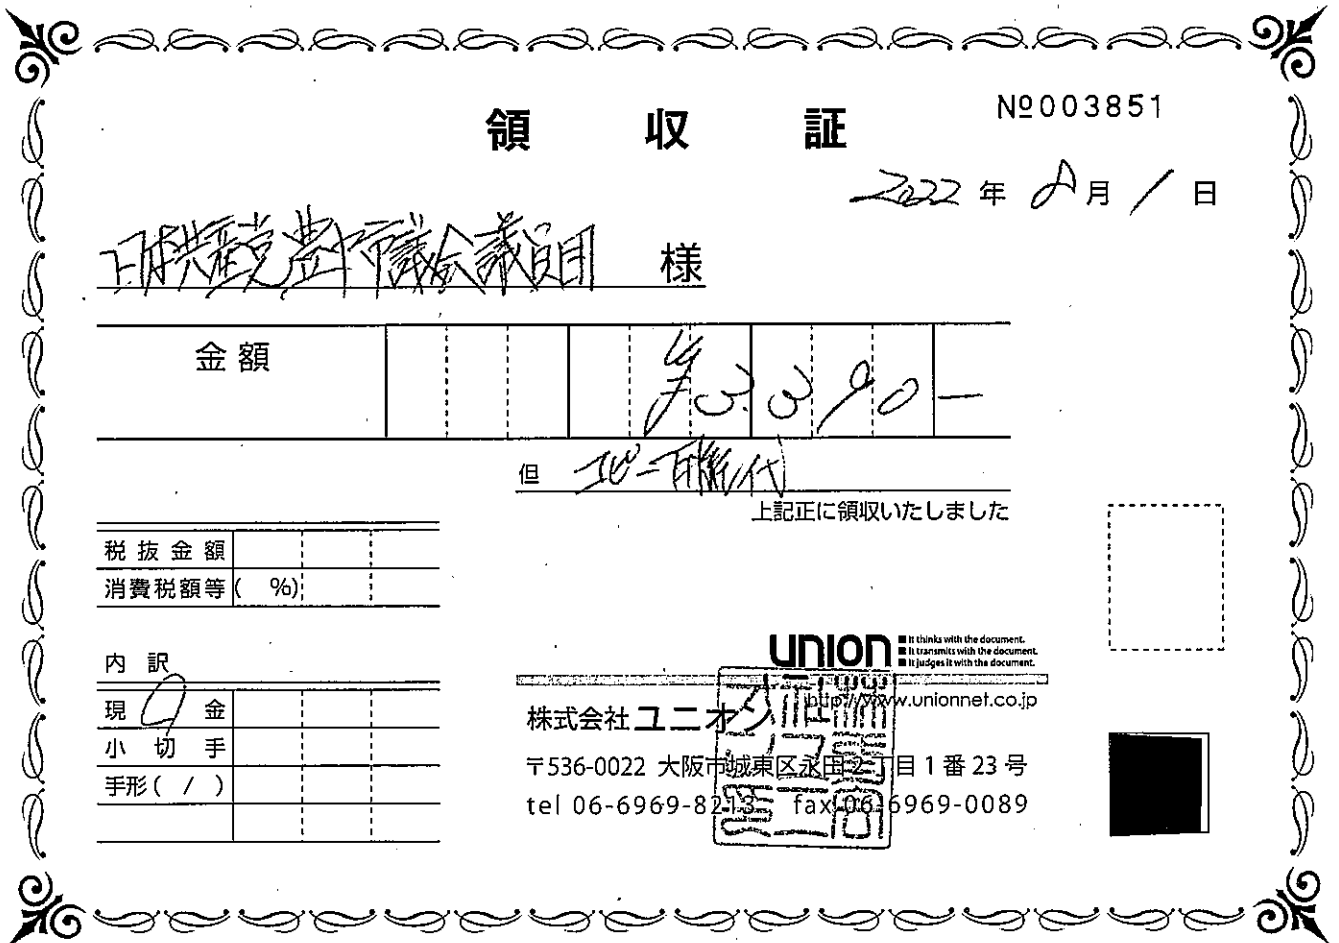 領収証
№003851
2022年8月1日
日本共産党豊中市議会議員団 様
金額 ¥3,390-
但 コピー機代
上記正に領収いたしました
税抜金額
消費税額等( %)
内訳
現金
小切手
手形( / )
UNION
It thinks with the document.
It transmits with the document.
It judges it with the document.
http://www.unionnet.co.jp
株式会社ユニオン
〒536-0022 大阪市城東区永田2丁目1番23号
tel 06-6969-8213 fax 06-6969-0089